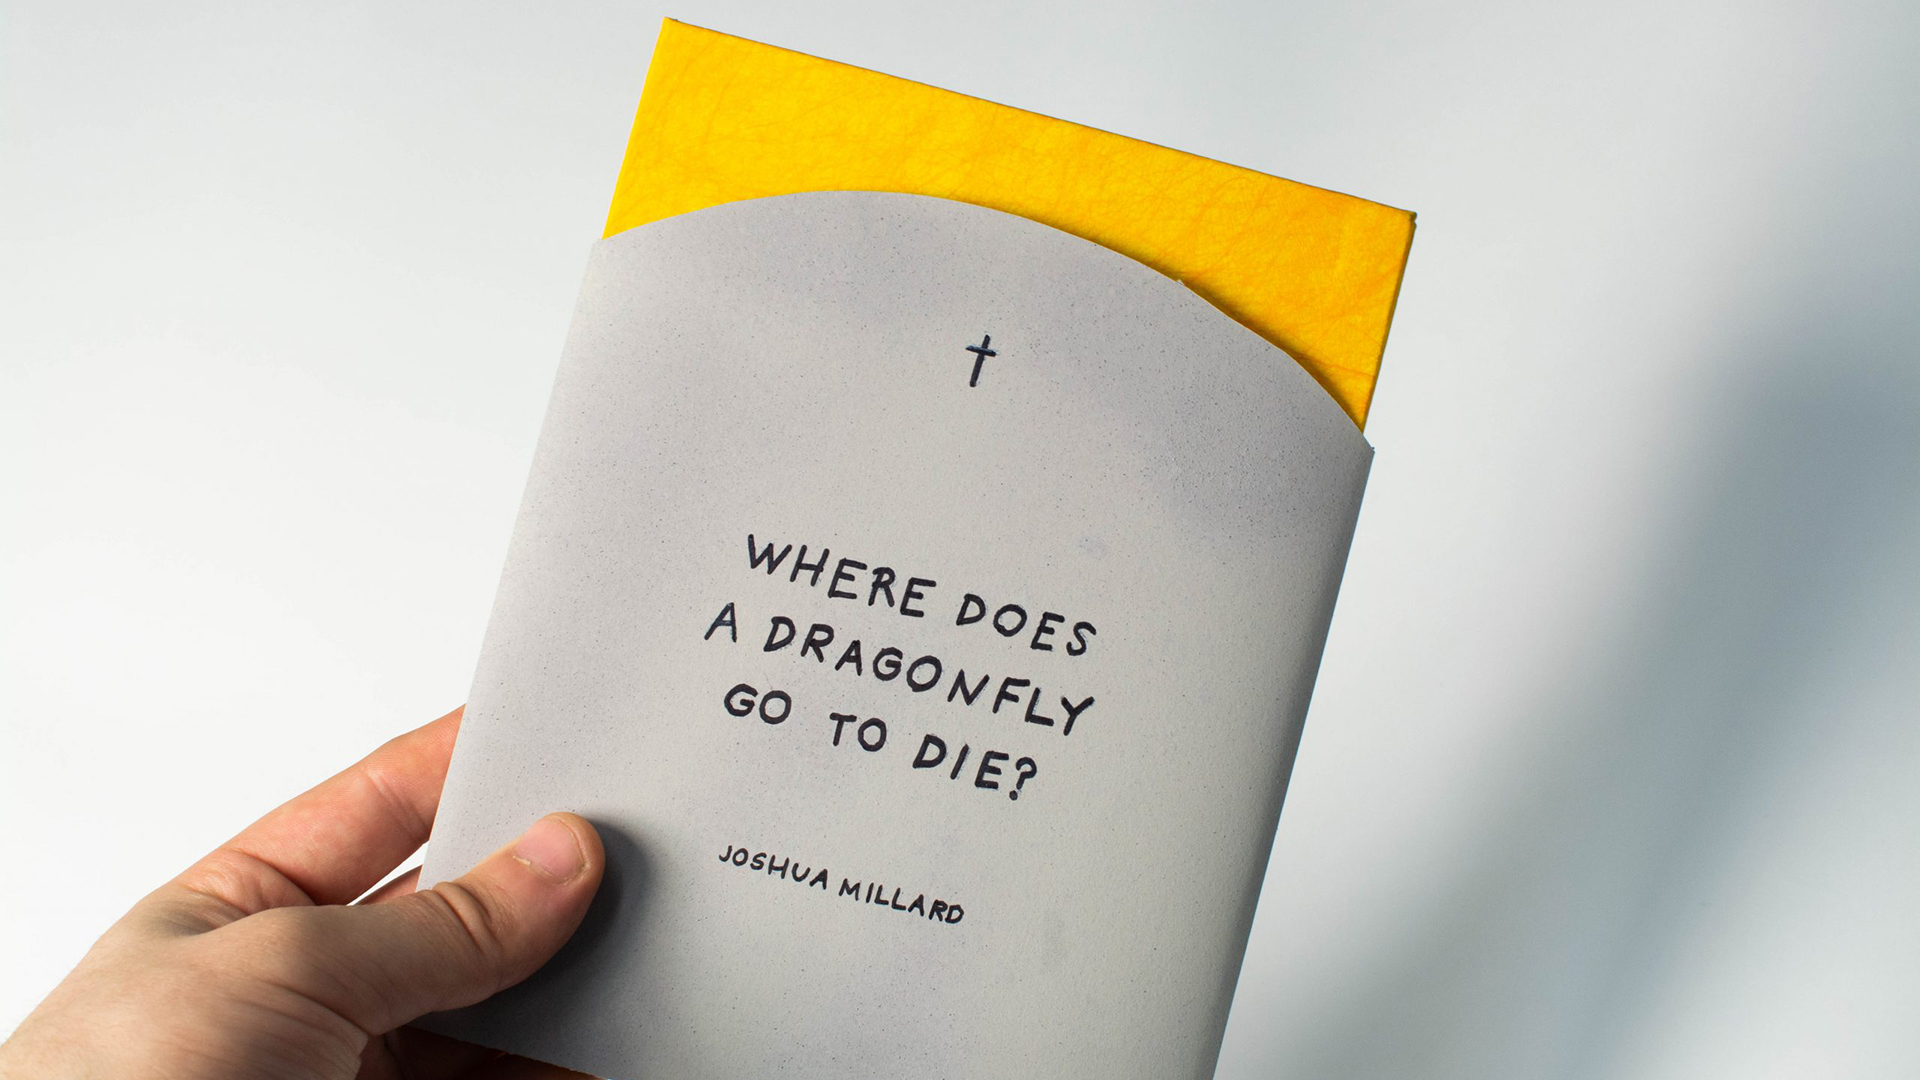 WHERE DOES
A DRAGONFLY
GO TO DIE?
JOSHUA MILLARD